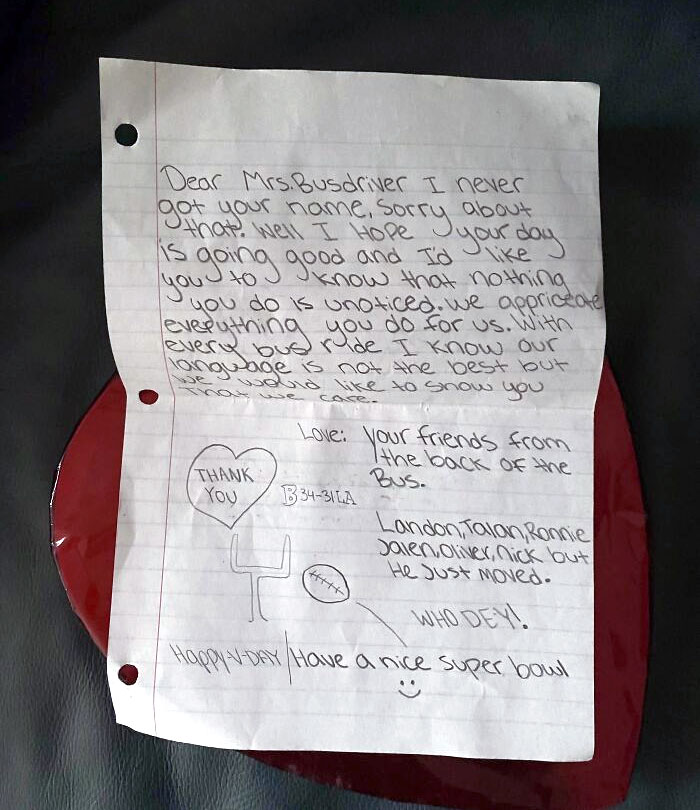 Dear Mrs.Busdriver I never
got your name, Sorry about
that. Well I Hope your day
is going good and I'd like
you to know that nothing
you do is unoticed. we appriceate
everything you do for us. With
every bus ride I know our
language is not the best but
we would like to show you
that we care.
Love: Your friends from
the back of the
Bus.
THANK
YOU
B34-31LA
Landon, Talan, Ronnie
Jalen, Oliver, Nick but
He Just moved.
WHO DEY!
Happy-V-DAY/Have a nice super bowl